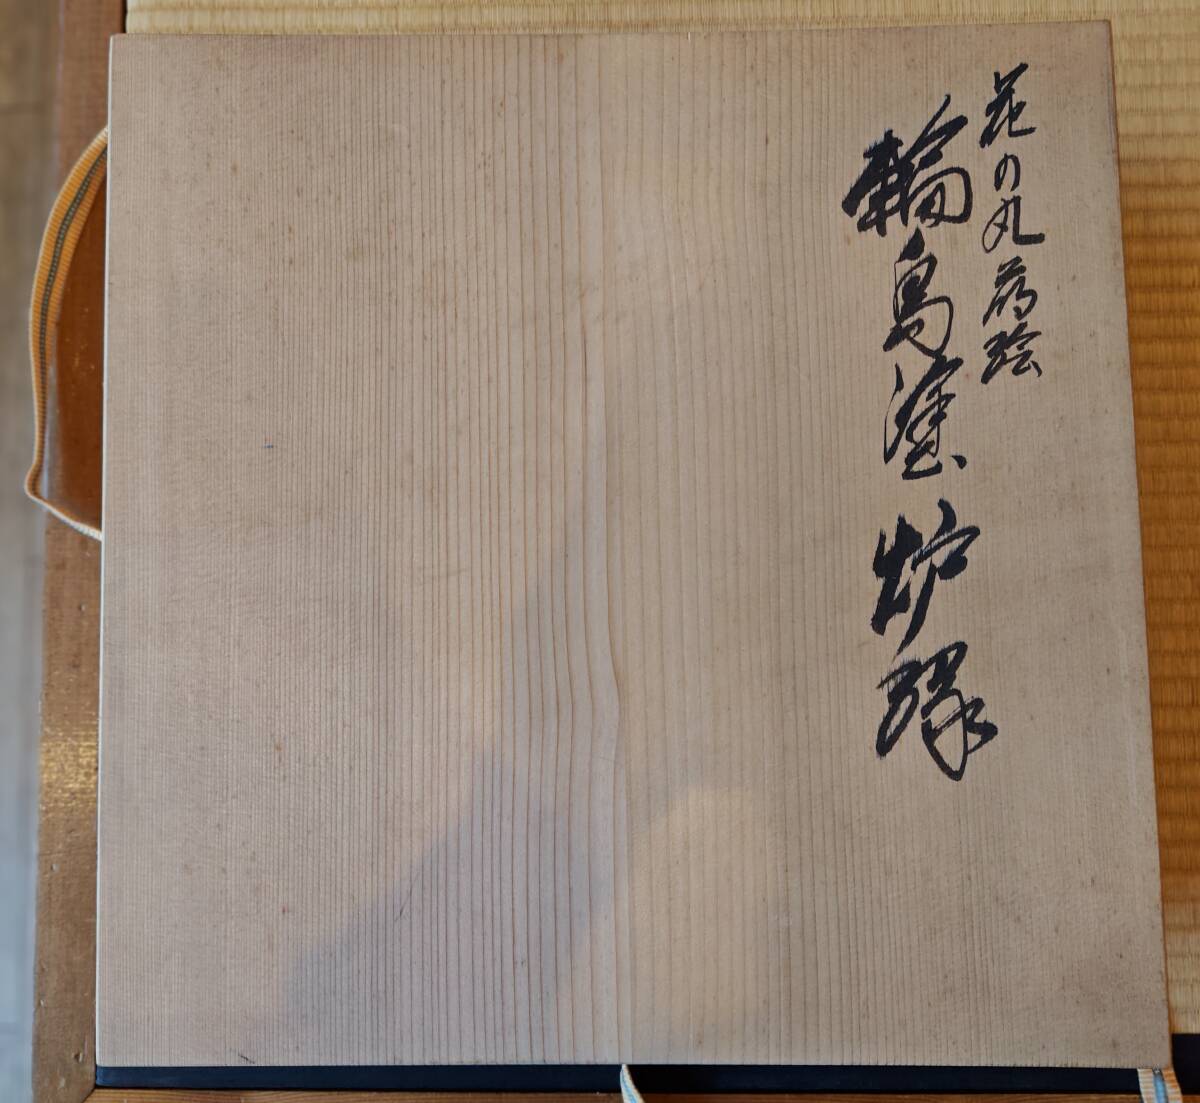 花の丸蒔絵
輪島塗 炉縁